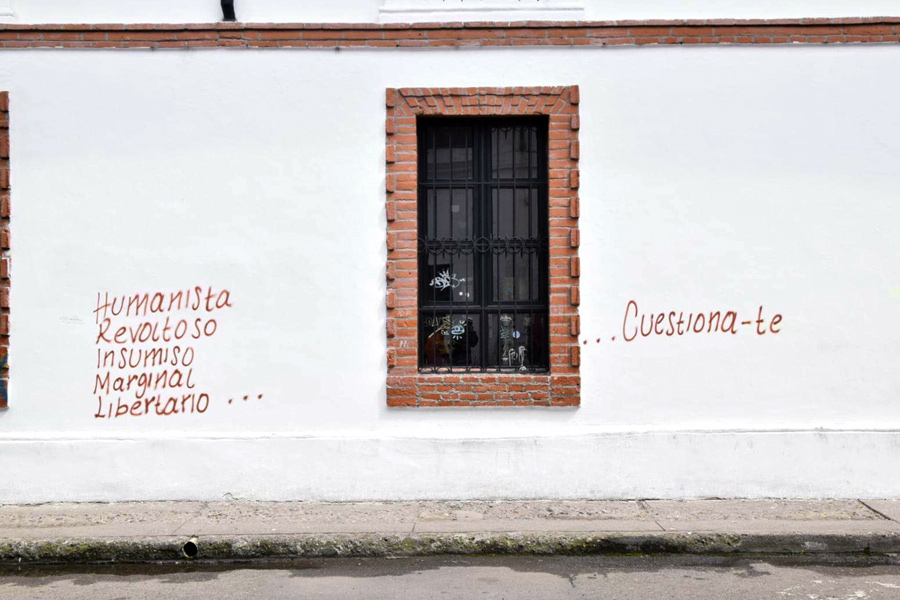 Humanista
Revoltoso
Insumiso
Marginal
Libertario ...
...Cuestiona-te